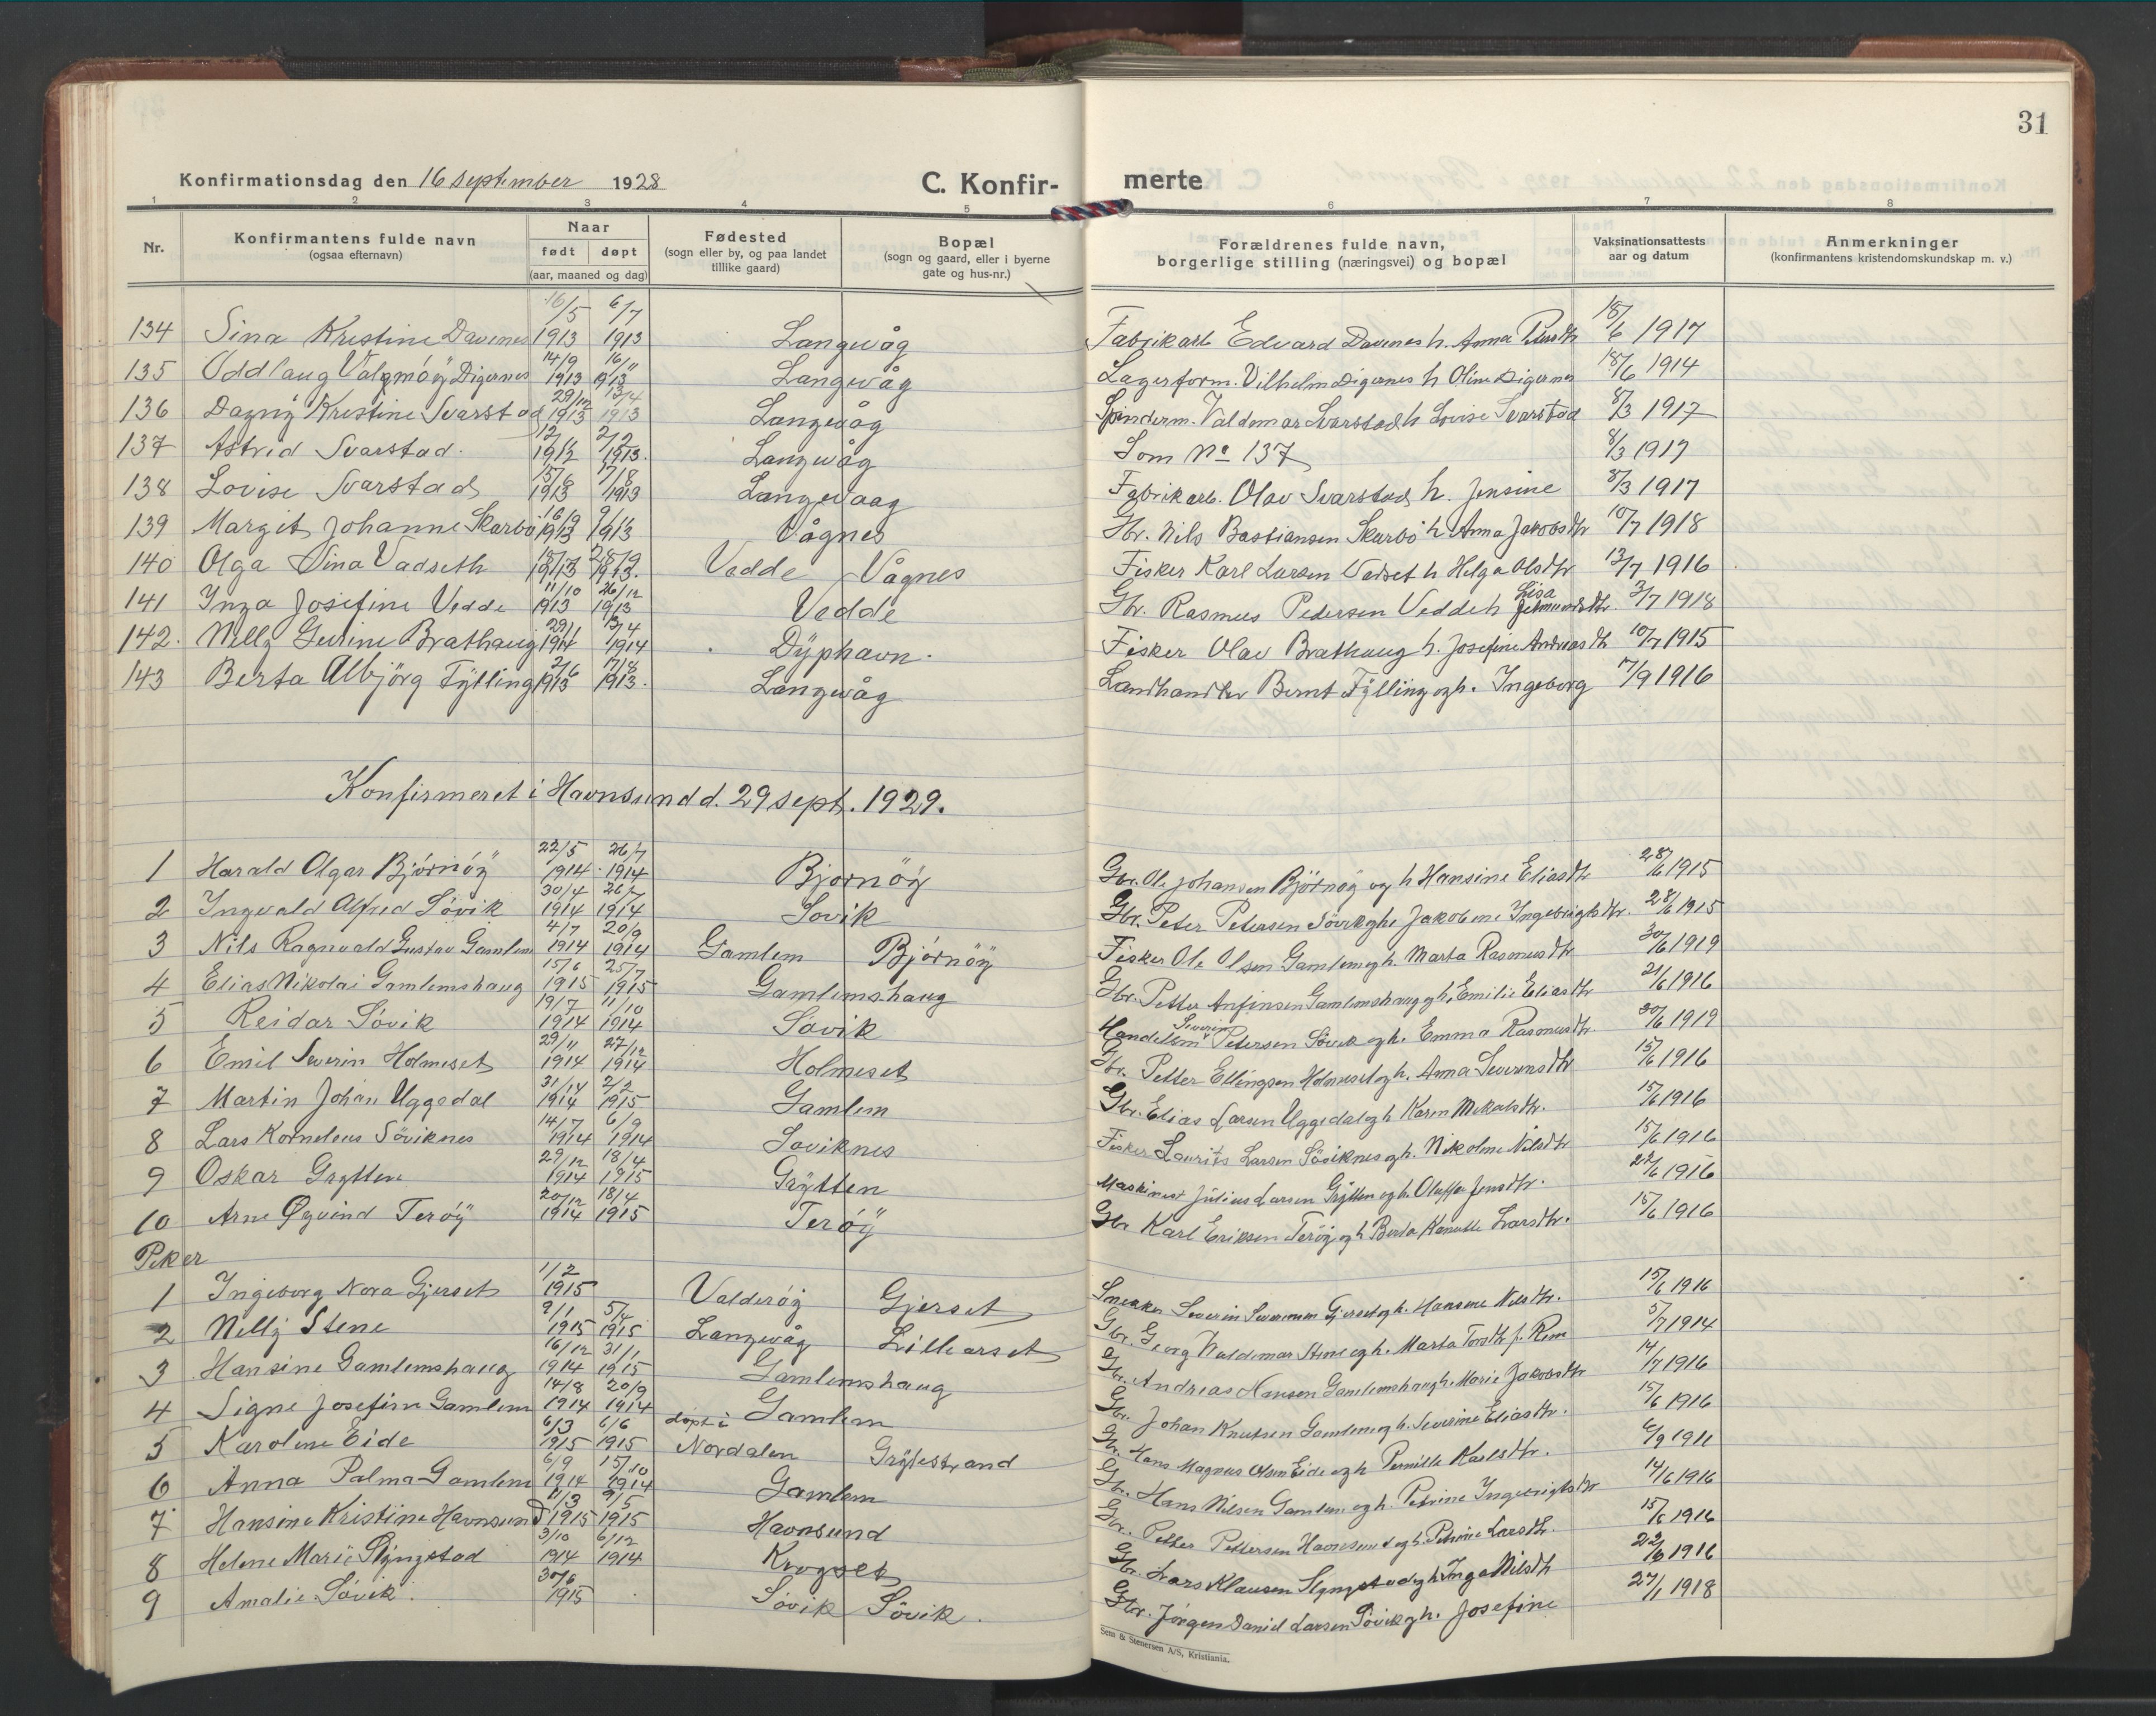 31
Konfirmationsdag den 16 september 1928 C. Konfir- merte
1 2 3 4 5 6 7 8
Nr. Konfirmantens fulde navn (ogsaa efternavn) Naar født døpt (aar, maaned og dag) Fødested (sogn eller by, og paa landet tillike gaard) Bopæl (sogn og gaard, eller i byerne gate og hus-nr.) Forældrenes fulde navn, borgerlige stilling (næringsvei) og bopæl Vaksinationsattests aar og datum Anmerkninger (konfirmantens kristendomskundskap m. v.)
134 Sina Kristine Davenes 16/5 1913 6/7 1913 Langevåg Fabrikarb Edvard Davenes h. Anna 18/6 1917
135 Oddlaug Valgmöÿ Digernes 14/9 1913 16/11 1913 Langevåg Lagerform. Vilhelm Digernes h Oline Digernes 18/6 1914
136 Dagnÿ Kristine Svarstad 29/12 13/4 1913 Langevåg Spinderm. Valdemar Svarstad h Lovise Svarstad 8/3 1917
137 Astrid Svarstad. 1912 2/2 1913. Langevåg Som No 137 8/3 1917
138 Lovise Svarstad 15/6 1913 17/8 1913 Langevaag Fabrikarb. Olav Svarstad h. Jensine 8/3 1917
139 Margit Johanne Skarbö 16/9 1913 9/11 1913 Vågnes Gbr. Nils Bastiansen Skarbö h Anna Jakobsdtr 10/7 1918
140 Olga Sina Vadseth 18/7 1913 28/9 1913. Vedde Vågnes Fisker Karl Larsen Vadset h Helga Olsdtr 13/7 1916
141 Inga Josefine Vedde 11/10 1913 26/12 1913 Vedde Gbr. Rasmus Pedersen Vedde h Lisa 3/7 1918
142. Nelly Gurine Brathaug 29/1 1914 13/4 1914 Dÿphavn. Fisker Olav Brathaug h. Josefine Andreasdtr 10/7 1915
143 Berta Albjörg Fÿlling 2/6 1913 17/8 1913. Langevåg Landhandler Bernt Fÿlling og h. Ingeborg 7/9 1916
Konfirmeret i Havnsund d. 29 sept. 1929.
1 Harald Olgar Björnöÿ 22/5 1914 26/7 1914 Bjornöÿ Gbr. Ole Johansen Björnöÿ og h Hansine Eliasdtr 28/6 1915
2 Ingvald Alfred Sövik 30/4 1914 26/7 1914 Sovik Gbr. Peter Petersen Sövik og h Jakobine Ingebrigtsdtr. 28/6 1915
3 Nils Ragnvald Gustav Gamlem 4/7 1914 20/9 1914 Gamlem Björnöÿ Fisker Ole Olsen Gamlem og h. Marta Rasmusdtr 30/6 1919
4 Elias Nikolai Gamlemshaug 15/6 1915 25/7 1915 Gamlemshaug Gbr. Petter Anfinsen Gamlemshaug og h. Emilie Eliasdtr 21/6 1916
5 Reidar Sövik 19/7 1914 11/10 1914 Sövik Handelsm Severin Petersen Sövik og h. Emma Rasmusdtr. 30/6 1919
6 Emil Severin Holmeset 29/11 1914 27/12 1914 Holmeset Gbr. Petter Ellingsen Holmeset og h. Anna Severinsdtr 15/6 1916
7 Martin Johan Uggedal 31/14 1914 2/2 1915 Gamlem Gbr. Elias Larsen Uggedal og h Karen Mikalsdtr. 15/6 1916
8 Lars Kornelius Söviknes 14/7 1914 6/9 1914 Soviknes Fisker Laurits Larsen Söviknes og h. Nikoline Nilsdtr 15/6 1916
9 Oskar Grytten 29/12 1914 18/4 1915 Grÿtten Maskinist Julius Larsen Grÿtten og h. Oluffa Jensdtr. 22/6 1916
10 Arne Øyvind Teröÿ 20/12 1914 18/4 1915 Teröÿ Gbr Karl Eriksen Teröÿ og h Berta Larsdtr. 15/6 1916
Piker
1 Ingeborg Nora Gjerset 1/2 1915 Valderöÿ Gjerset Snekker Severin Gjerset og h. Hansine Nilsdtr. 15/6 1916
2 Nellÿ Stene 9/1 1915 5/4 1915 Langevåg Lillearset Gbr. Georg Valdemar Stene og h. Marta 5/7 1914
3 Hansine Gamlemshaug 16/12 1914 31/1 1915 Gamlemshaug Gbr. Andreas Hansen Gamlemshaug h. Marie Jakobsdtr 14/7 1916
4 Signe Josefine Gamlem 14/8 1914 20/9 1914 Gamlem Gbr. Johan Knutsen Gamlem og h. Severine Eliasdtr. 15/6 1916
5 Karoline Eide 6/3 1915 6/6 1915 döpt i Nordalen Grÿtestrand Gbr. Hans Magnus Olsen Eide og h Pernille Karlsdtr. 6/9 1911
6 Anna Palma Gamlem 6/9 1914 15/10 1914 Gamlem Gbr. Hans Nilsen Gamlem og h. Petrine Ingebrigtsdtr 14/6 1916
7 Hansine Kristine Havnsund 11/3 1915 9/5 1915 Havnsund Gbr. Petter Pettersen Havnsund og h. Petrine Larsdtr. 15/6 1916
8 Helene Marie Slÿngstad 3/10 1914 6/12 1914 Krogset Gbr. Lars Klausen Slyngstad og h Inga Nilsdtr 22/6 1916
9 Amalie Sövik. 30/6 1915 Sövik Sövik. Gbr. Jörgen Daniel Larsen Sövik og h. Josefine 27/1 1918
Sem & Stenersen A/S, Kristiania.